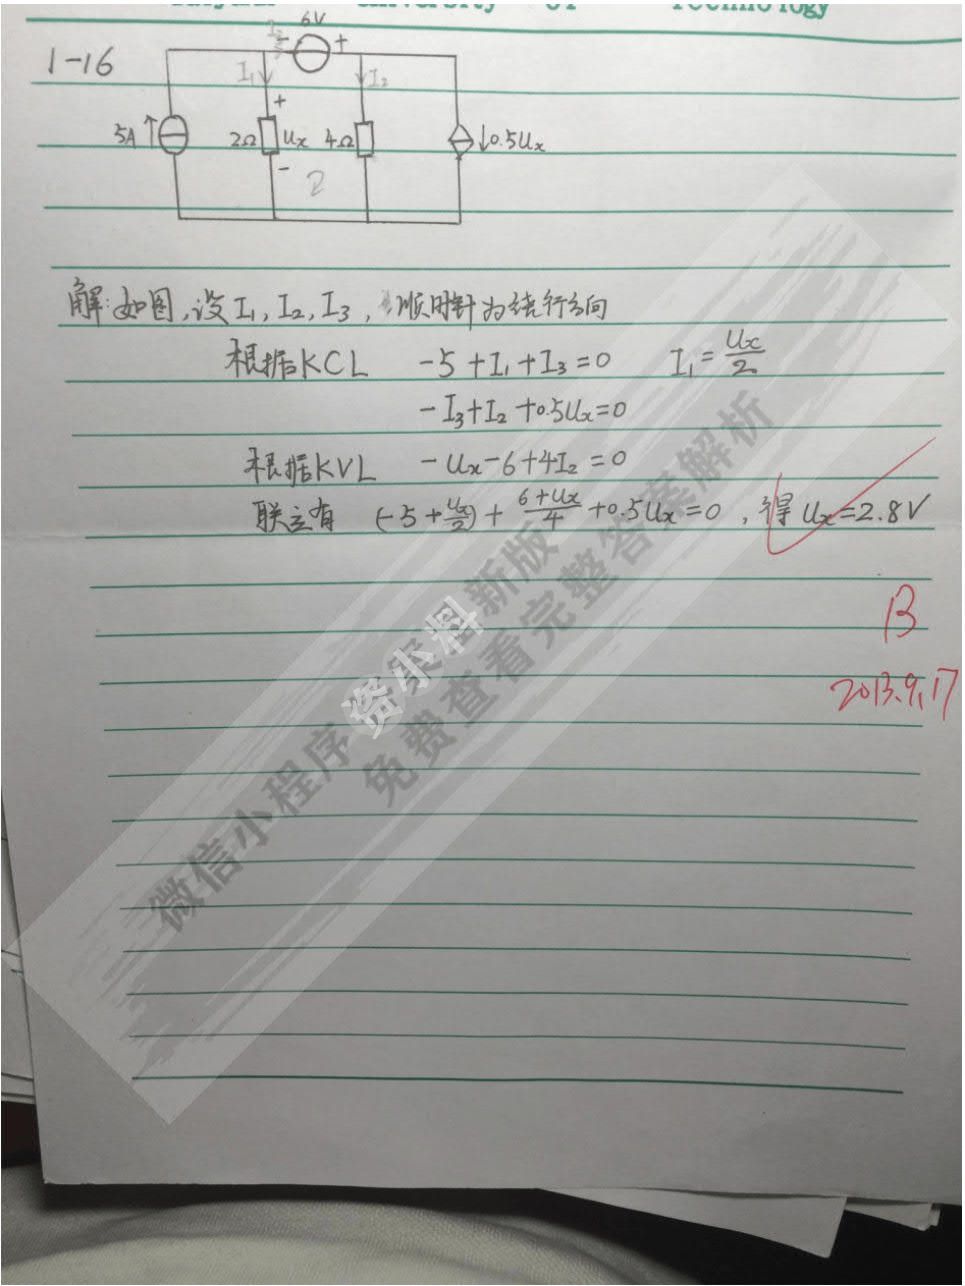 University of Technology
1-16
I₃ 6V
- +
I₁ I₂
+
5A 2Ω Ux 4Ω 0.5Ux
-
解:如图,设I₁,I₂,I₃,顺时针为绕行方向
根据KCL -5+I₁+I₃=0 I₁=Ux/2
-I₃+I₂+0.5Ux=0
根据KVL -Ux-6+4I₂=0
联立有 (-5+Ux/2)+(6+Ux)/4+0.5Ux=0,得Ux=2.8V
B
2013.9.17
微信小程序 资小料 新版
免费查看完整答案解析